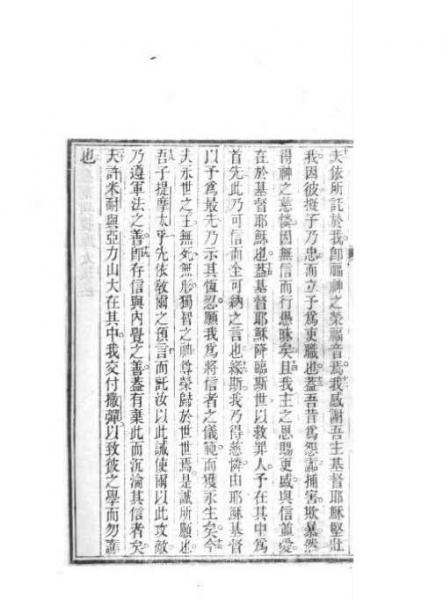 夫依所託於我卽福神之榮福音焉我感謝吾主基督耶穌堅壯
我因彼擬予乃忠而立予爲吏職也蓋吾昔爲怨謗捕害欺暴然
得神之慈憐因無信而行愚昧矣且我主之恩賜更盛與信並愛
在於基督耶穌也蓋基督耶穌降臨斯世以救罪人予在其中爲
首先此乃可信而全可納之言也緣斯我乃得慈憐由耶穌基督
以予爲最先乃示其恆忍願我爲將信者之儀範而獲永生矣今
夫永世之王無死無形獨智之神尊榮歸於世世焉是誠所願也
吾子提摩太乎先依敎爾之預言而託汝以此誡使爾以此攻敵
乃遵軍法之善卽存信與內覺之善蓋有棄此而沉淪其信者矣
夫許米耐與亞力山大在其中我交付撒彈以致彼之學而勿謗
也